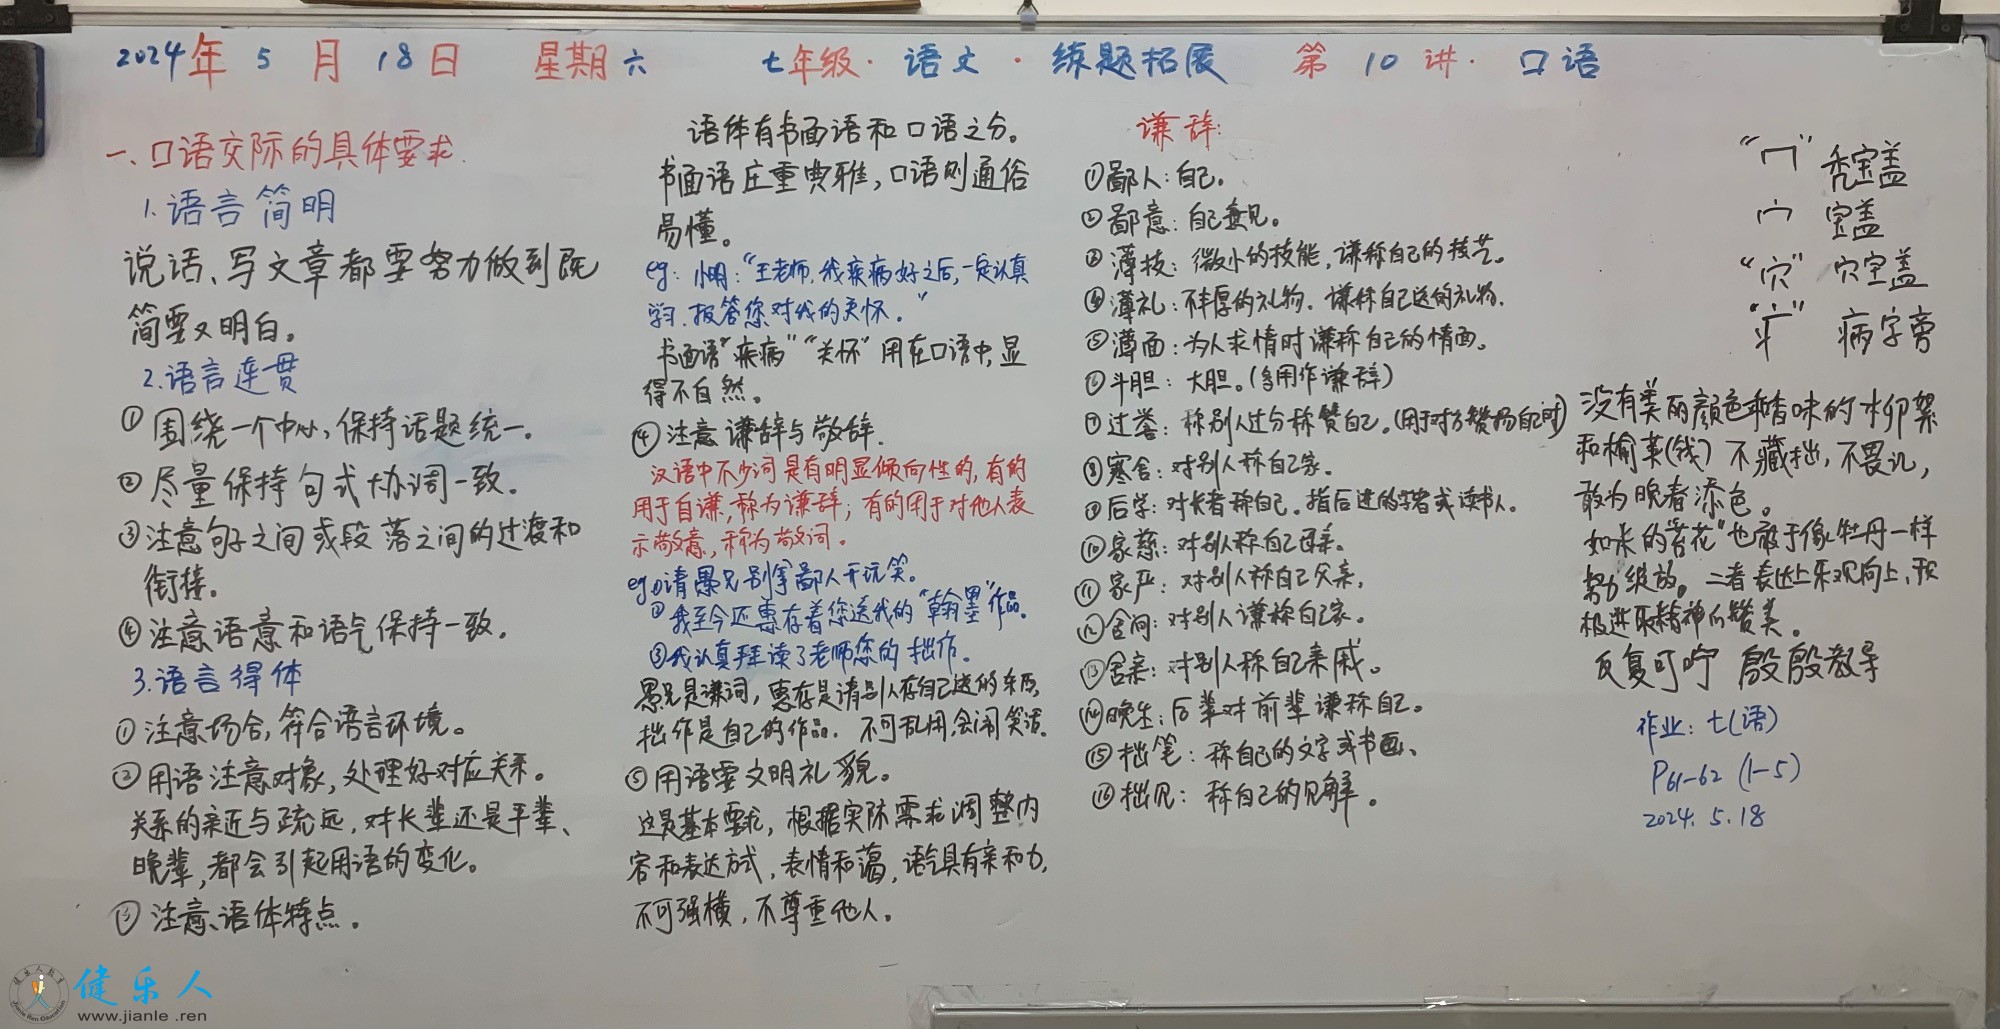 2024年5月18日 星期六 七年级·语文·练题拓展 第10讲·口语
一、口语交际的具体要求.
1.语言简明
说话、写文章都要努力做到既
简要又明白。
2.语言连贯
①围绕一个中心,保持话题统一。
②尽量保持句式协调一致。
③注意句子之间或段落之间的过渡和
衔接。
④注意语意和语气保持一致。
3.语言得体
①注意场合,符合语言环境。
②用语注意对象,处理好对应关系。
关系的亲近与疏远,对长辈还是平辈、
晚辈,都会引起用语的变化。
③注意语体特点。
语体有书面语和口语之分。
书面语庄重典雅,口语则通俗
易懂。
eg:小明:“王老师,我疾病好之后,一定认真
学习.报答您对我的关怀。”
书面语“疾病”“关怀”用在口语中,显
得不自然。
④注意谦辞与敬辞.
汉语中不少词是有明显倾向性的,有的
用于自谦,称为谦辞;有的用于对他人表
示敬意,称为敬词。
eg①请愚兄别拿鄙人开玩笑。
②我至今还惠存着您送我的“翰墨”作品.
③我认真拜读了老师您的拙作。
愚兄是谦词,惠存是请别人存自己送的东西,
拙作是自己的作品.不可乱用,会闹笑话.
⑤用语要文明礼貌。
这是基本要求,根据实际需求调整内
容和表达方式,表情和蔼,语气具有亲和力,
不可强横,不尊重他人。
谦辞:
①鄙人:自己。
②鄙意:自己意见。
③薄技:微小的技能,谦称自己的技艺。
④薄礼:不丰厚的礼物.谦称自己送的礼物.
⑤薄面:为人求情时谦称自己的情面。
⑥斗胆:大胆。(多用作谦辞)
⑦过誉:称别人过分称赞自己。(用于对方赞扬自己时)
⑧寒舍:对别人称自己家。
⑨后学:对长者称自己.指后进的学者或读书人。
⑩家慈:对别人称自己母亲。
⑪家严:对别人称自己父亲.
⑫舍间:对别人谦称自己家。
⑬舍亲:对别人称自己亲戚。
⑭晚生:后辈对前辈谦称自己。
⑮拙笔:称自己的文字或书画、
⑯拙见:称自己的见解。
“冖”秃宝盖
宀 宝盖
“穴”穴宝盖
“疒”病字旁
没有美丽颜色和香味的杨柳絮
和榆荚(钱)不藏拙,不畏讥,
敢为晚春添色。
如米的“苔花”也敢于像牡丹一样
努力绽放。二者表达上乐观向上,积
极进取精神的赞美。
反复叮咛 殷殷教导
作业:七(语)
P61-62(1-5)
2024.5.18
健乐人
www.jianle .ren